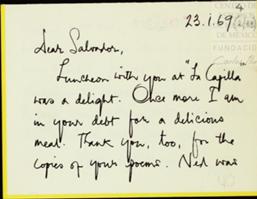 4
23.1.69
DE MÉXICO
FUNDACIÓ
Dear Salvador,
Luncheon with you at "La Capilla
was a delight. Once more I am
in your debt for a delicious
meal. Thank you, too, for the
copies of your poems. Ned was